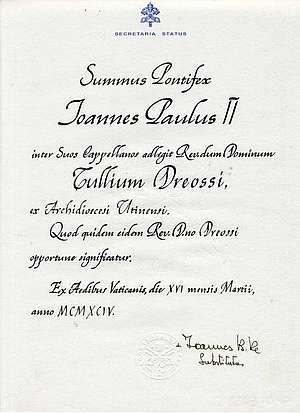 SECRETARIA STATUS
Summus Pontifex
Joannes Paulus II
inter Suos Cappellanos adlegit Rev.dum Dominum
Tullium Dreossi,
ex Archidioecesi Utinensi.
Quod quidem eidem Rev. D.no Dreossi
opportune significatur.
Ex Aedibus Vaticanis, die XVI mensis Martii,
anno MCMXCIV.
+ Joannes B. Re
Substitutus